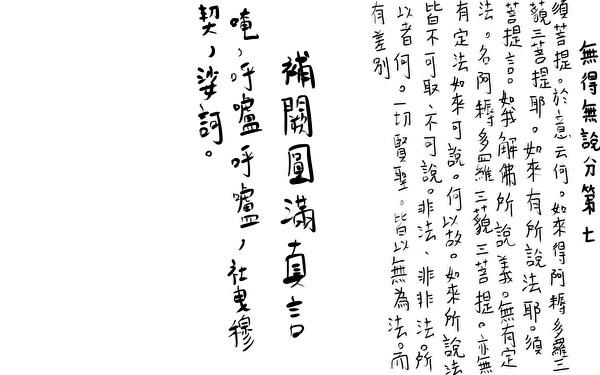 無得無說分第七
須菩提。於意云何。如來得阿耨多羅三
藐三菩提耶。如來有所說法耶。須
菩提言。如我解佛所說義。無有定
法。名阿耨多羅三藐三菩提。亦無
有定法如來可說。何以故。如來所說法
皆不可取、不可說。非法、非非法。所
以者何。一切賢聖。皆以無為法。而
有差別
補闕圓滿真言
唵,呼嚧呼嚧,社曳穆
契,娑訶。